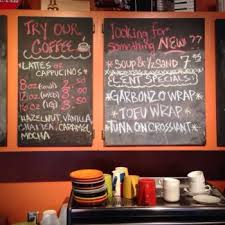 TRY OUR
COFFEE
*LATTES OR
CAPPUCINOS*
8oz (small)
12oz (med)
16oz
HAZELNUT, VANILLA
CHAI TEA, CARAMEL
MOCHA
looking for
something NEW??
*SOUP & ½ SAND 7.95
CLIENT SPECIALS!
*GARBONZO WRAP
*TOFU WRAP
*TUNA ON CROSSIANT